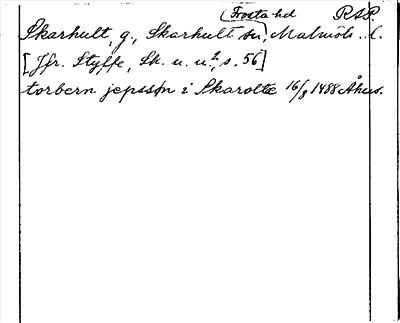 (Frosta hd RSP.
Skarhult, g., Skarhult sn, Malmöh. l.
[Jfr. Styffe, Sk. u. u.², s. 56]
torbern jepssøn i Skarolte 16/8 1488 Åhus.